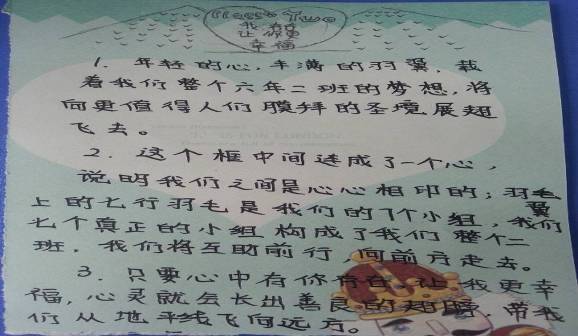 Class Two
我
让你更
幸福
1. 年轻的心,丰满的羽翼,载
着我们整个六年二班的梦想,将
向更值得人们膜拜的圣境展翅
飞去。
2. 这个框中间连成了一个心,
说明我们之间是心心相印的;羽毛
上的七行羽毛是我们的7个小组,我们
七个真正的小组构成了我们整个二
班。我们将互助前行,向前方走去。
3. 只要心中有你存在,让我更幸
福,心灵就会长出善良的翅膀,带我
们从地平线飞向远方。